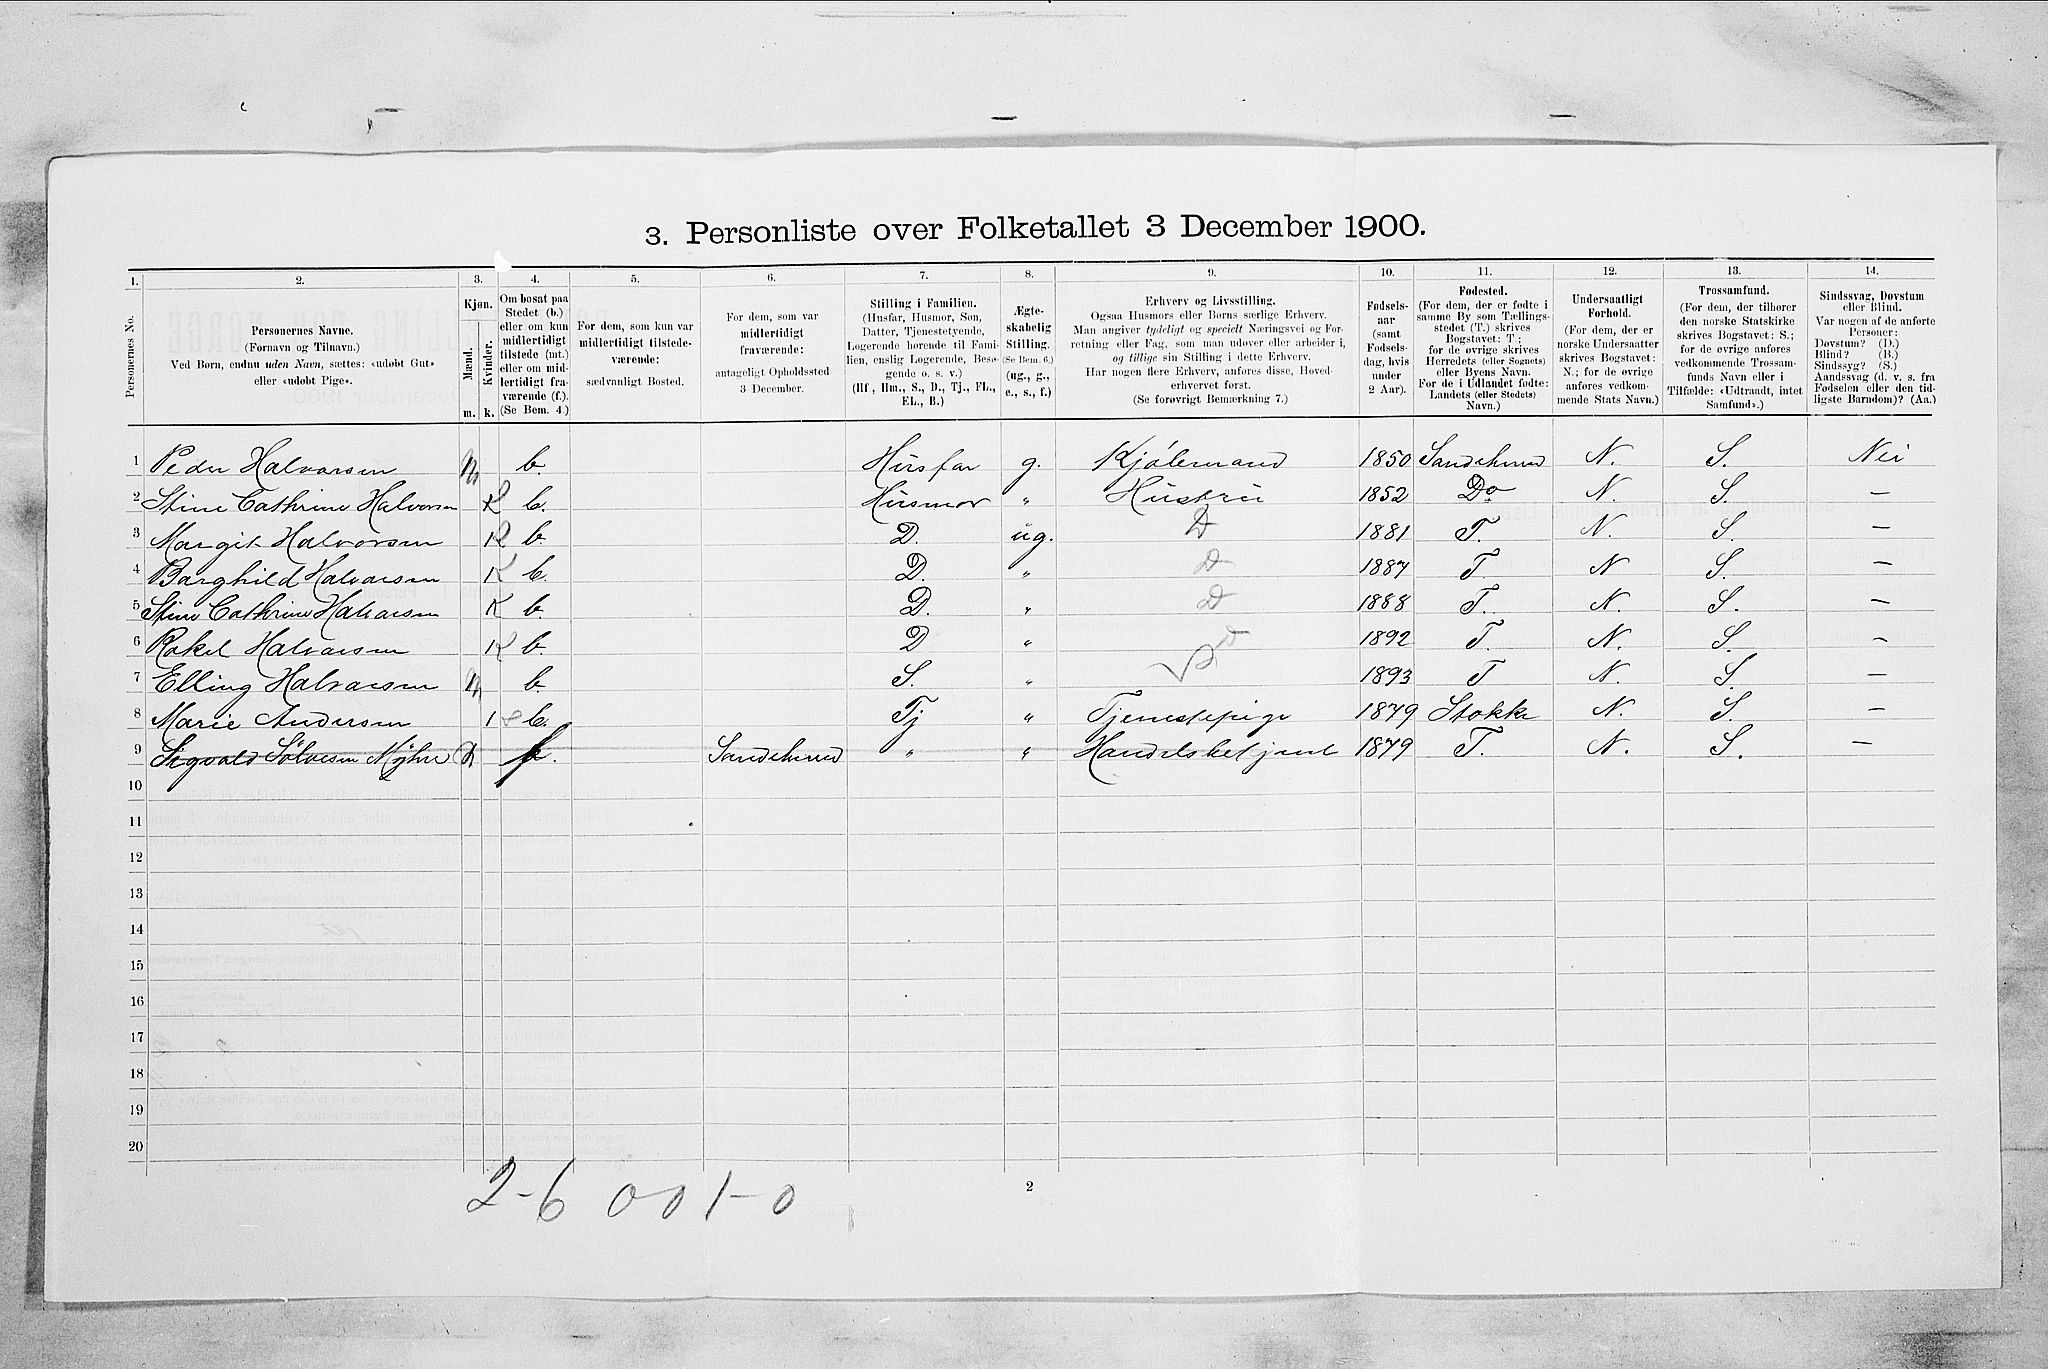 3. Personliste over Folketallet 3 December 1900.
1. 2. 3. 4. 5. 6. 7. 8. 9. 10. 11. 12. 13. 14.
Personernes No.
Personernes Navne.
(Fornavn og Tilnavn.)
Ved Børn, endnu uden Navn, sættes: «udøbt Gut»
eller «udøbt Pige».
Kjøn.
Mænd.
Kvinder.
m. k.
Om bosat paa
Stedet (b.)
eller om kun
midlertidigt
tilstede (mt.)
eller om mid-
lertidigt fra-
værende (f.).
(Se Bem. 4.)
For dem, som kun var
midlertidigt tilstede-
værende:
sædvanligt Bosted.
For dem, som var
midlertidigt
fraværende:
antageligt Opholdssted
3 December.
Stilling i Familien.
(Husfar, Husmor, Søn,
Datter, Tjenestetyende,
Logerende hørende til Fami-
lien, enslig Logerende, Besø-
gende o. s. v.)
(Hf, Hm., S., D., Tj., FL.,
EL., B.)
Ægte-
skabelig
Stilling.
(Se Bem. 6.)
(ug., g.,
e., s., f.)
Erhverv og Livsstilling.
Ogsaa Husmors eller Børns særlige Erhverv.
Man angiver tydeligt og specielt Næringsvei og For-
retning eller Fag, som man udøver eller arbeider i,
og tillige sin Stilling i dette Erhverv.
Har nogen flere Erhverv, anføres disse, Hoved-
erhvervet først.
(Se forøvrigt Bemærkning 7.)
Fødsels-
aar
(samt
Fødsels-
dag, hvis
under
2 Aar).
Fødested.
(For dem, der er fødte i
samme By som Tællings-
stedet (T.) skrives
Bogstavet: T;
for de øvrige skrives
Herredets (eller Sognets)
eller Byens Navn.
For de i Udlandet fødte:
Landets (eller Stedets)
Navn.)
Undersaatligt
Forhold.
(For dem, der er
norske Undersaatter
skrives Bogstavet:
N.; for de øvrige
anføres vedkom-
mende Stats Navn.)
Trossamfund.
(For dem, der tilhører
den norske Statskirke
skrives Bogstavet: S.;
for de øvrige anføres
vedkommende Trossam-
funds Navn eller i
Tilfælde: «Udtraadt, intet
Samfund».)
Sindssvag, Døvstum
eller Blind.
Var nogen af de anførte
Personer:
Døvstum? (D.)
Blind? (B.)
Sindssyg? (S.)
Aandssvag (d. v. s. fra
Fødselen eller den tid-
ligste Barndom)? (Aa.)
1 Peder Halvorsen m b. Husfar g. Kjøbmand 1850 Sandeherred N. S. Nei
2 Stine Cathrine Halvorsen K b. Husmor " Hustru 1852 Do N. S. —
3 Margit Halvorsen K b. D. ug. D 1881 T. N. S. —
4 Borghild Halvorsen K b. D. " D 1887 T. N S. —
5 Stine Cathrine Halvorsen K b. D. " D 1888 T. N. S. —
6 Rakel Halvorsen K b. D " D 1892 T. N. S. —
7 Elling Halvorsen m b. S. " 1893 T N. S. —
8 Marie Andersen K b. Tj " Tjenestepige 1879 Stokke N. S. —
9 Sigvald Sølvesen Myhre M f. Sandeherred " " Handelsbetjent 1879 T. N. S. —
10
11
12
13
14
15
16
17
18
19
20
2-6 0 0 1-0
2